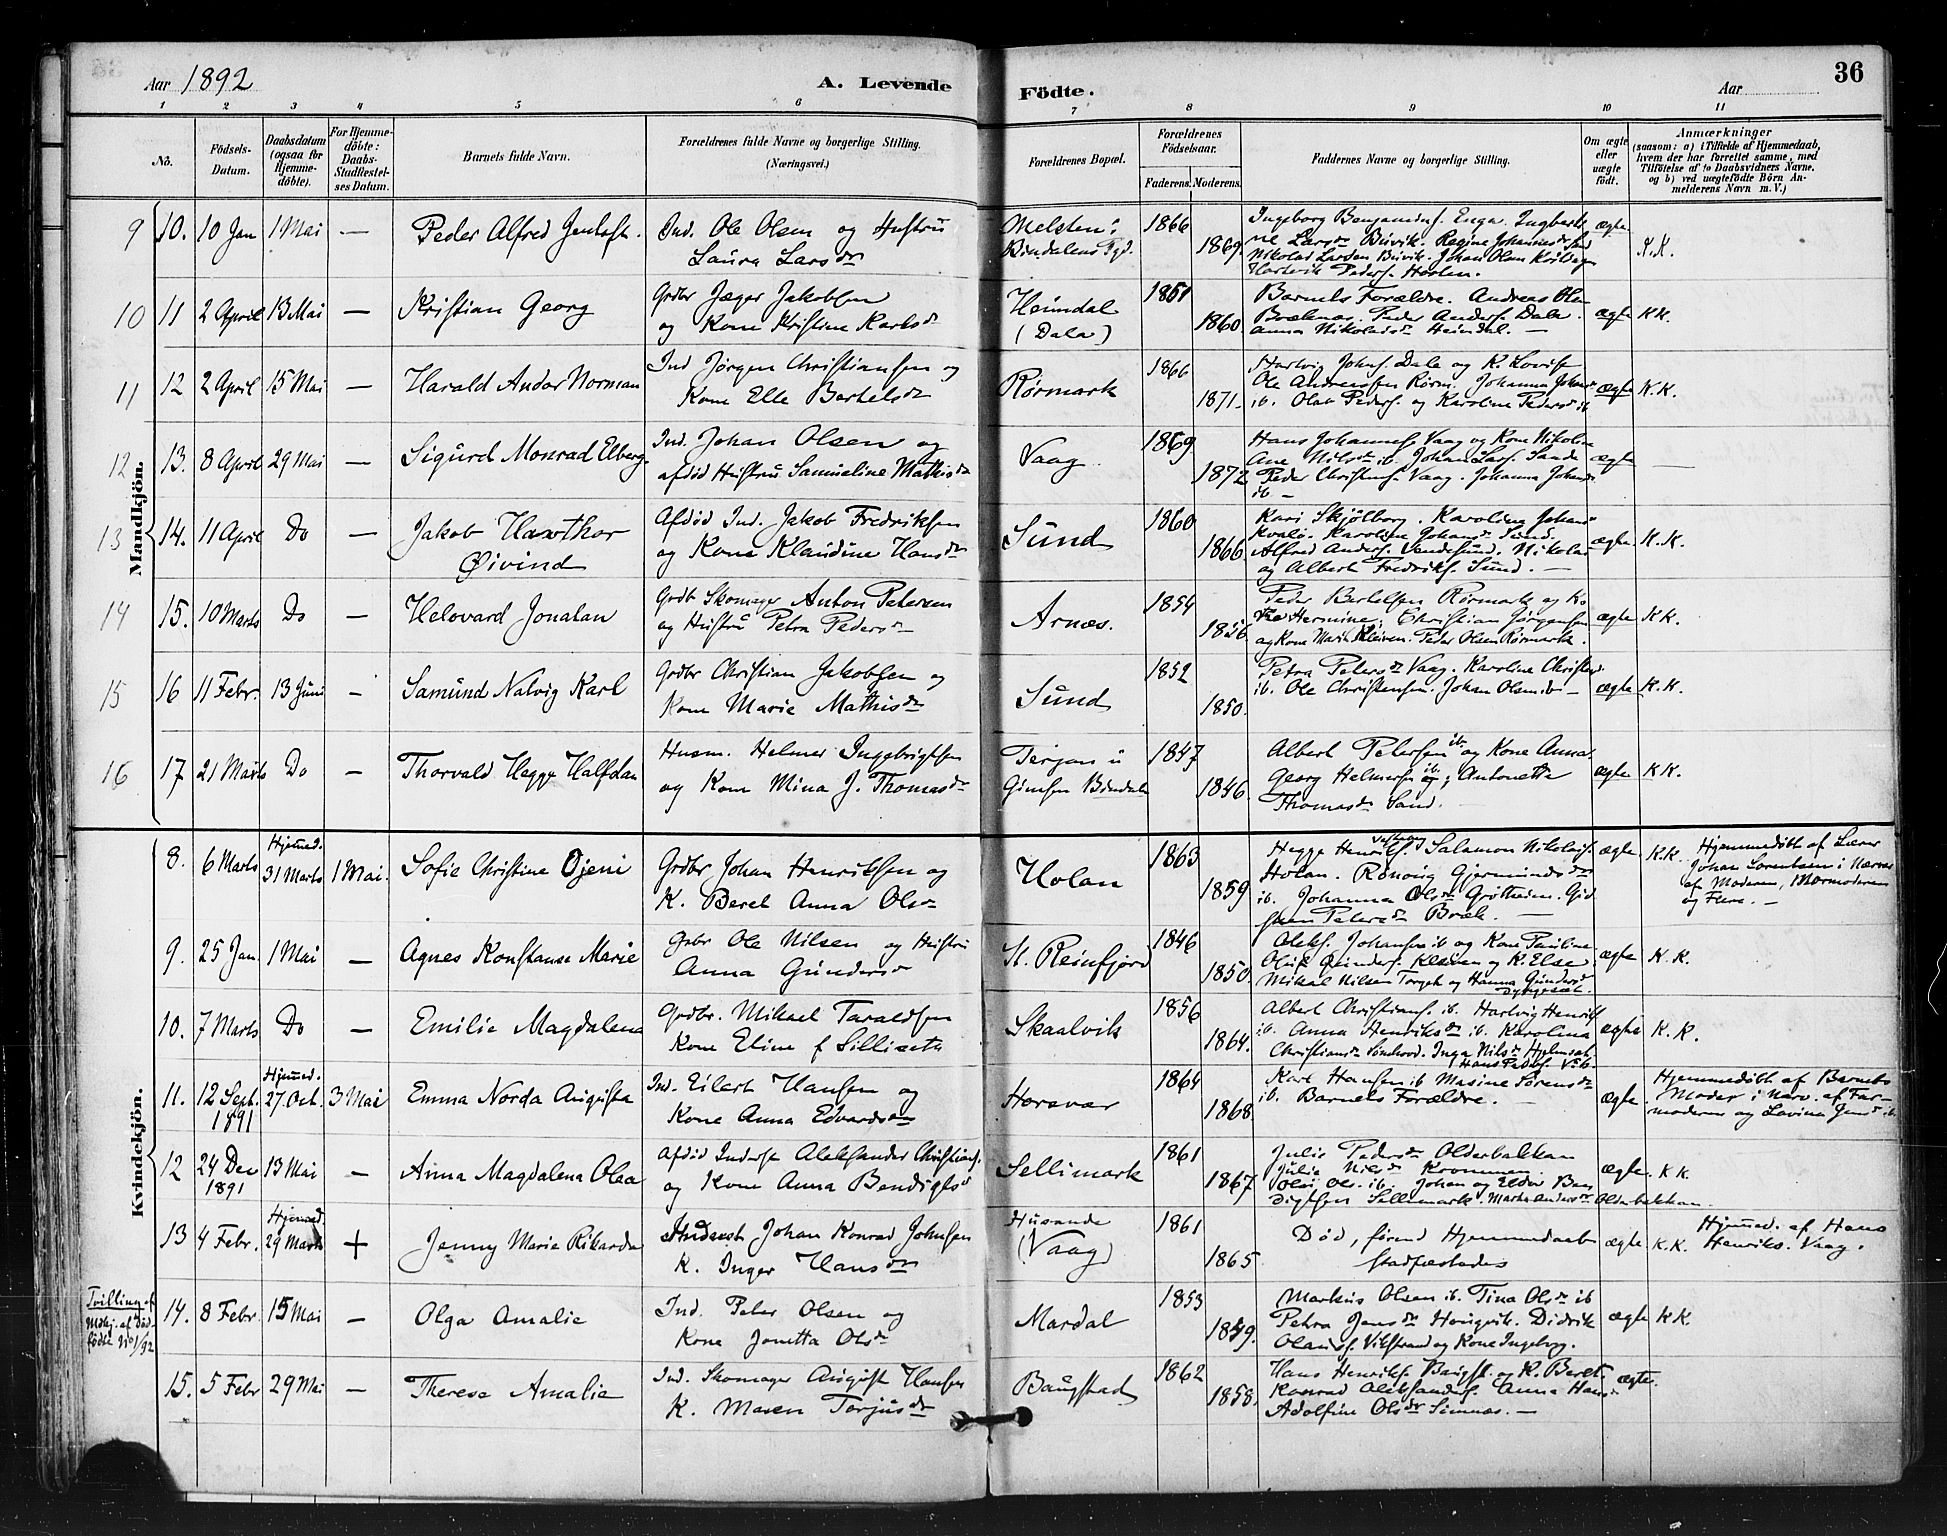 Aar 1892 A. Levende Födte. Aar 36
1 2 3 4 5 6 7 8 9 10 11
No. Födsels-Datum. Daabsdatum (ogsaa for Hjemme-döbte). For Hjemme-döbte: Daabs-Stadfæstel-ses Datum. Barnets fulde Navn. Forældrenes fulde Navne og borgerlige Stilling. (Næringsvei.) Forældrenes Bopæl. Forældrenes Födselsaar. Faderens. Moderens. Faddernes Navne og borgerlige Stilling. Om ægte eller uægte födt. Anmærkninger (saasom: a) i Tilfælde af Hjemmedaab, hvem der har forrettet samme, med Tilföielse af to Daabsvidners Navne, og b) ved uægtefödte Börn An-melderens Navn m. V.)
Mandkjön.
9 10. 10 Jan 1 Mai — Peder Alfred Ind. Ole Olsen og Hustru
Laura Larsdr
Melsten i Bindalens Pgd. 1866 1869.
Ingeborg Benjaminsf. Enga. Larsdr Büvik. Regine Johannesdr Sund
Nikolai Larsen Büvik. Johan Olsen
Hartvik Pedersf. Horten.
ægte K.K.
10 11 2 April 13 Mai — Kristian Georg Grdbr Jæger Jakobsen
og Kone Kristine Karlsdr
Heimdal (Dala) 1861 1860
Barnets Forældre. Andreas Olsen
Peder Andersf. Dala.
Anna Nikolaisdr Heimdal. —
ægte KK.
11 12 2 April 15 Mai — Harald Andor Norman Ind Jörgen Christiansen og
Kone Elle Bertelsdr
Rörmark 1866 1871.
Hartvig Johnsf. Dale og K. Lovise
Ole Andreassen Rörm. Johanna Johansdr
ib. Olab Pedersf. og Karoline Pedersdr ib
ægte K.K.
12 13. 8 April 29 Mai — Sigurd Monrad Elberg. Ind. Johan Olsen og
afdöd Hustru Samueline Mathisdr
Vaag. 1869 1872
Hans Johannesf. Vaag og Kone Nikoline
Ane Nilsdr ib. Johan Larsf. Sande
Peder Christensf. Vaag. Johanna Johansdr
ib. —
ægte —
13 14. 11 April Do — Jakob Hawthor
Øivind
Afdöd Ind. Jakob Fredriksen
og Kone Klaudine Hansdr
Sund 1860 1866.
Kari Skjölborg. Karoline Johansdr
Kvalö. Karoline Johansdr Sund.
Alfred Andersf. Vendesund. Nikolai
og Albert Fredriksf. Sund. —
ægte. K.K.
14 15. 10 Marts Do — Helovard Jonatan Grdb Skomager Anton Petersen
og Hustru Petra Pedersdr
Arnæs. 1854 1856.
Peder Bertelsen Rörmark og Ko
ne Hermine; Christian Jörgensen
og Kone Marth Kleiven. Peder Olsen Rörmark.
ægte KK.
15 16 11 Febr. 13 Juni — Samund Nalvig Karl Grdbr Christian Jakobsen og
Kone Marie Mathisdr
Sund 1852 1850.
Petra Petersdr Vaag. Karoline Christensdr
ib. Ole Christensen. Johan Olsen ib —
ægte K.K.
16 17 21 Marts Do — Thorvald Hegge Halfdan Husm. Helmer Ingebrigtsen
og Kone Mina J. Thomasdr
Terjan i Gimsen Bindalen 1847 1846.
Albert Petersen ib. og Kone Anna.
Georg Helmersen ib.; Antonette
Thomasdr Sand.
ægte KK.
Kvindekjön.
8. 6 Marts Hjemmed. 31 Marts 1 Mai. Sofie Christine Ojeni Grdbr Johan Henriksen og
K. Beret Anna Olsdr
Holan 1863 1859
Hegge Henriksf. Salamon Nikolaisf.
Holan. Rönnvig Gjermundsdr
ib. Johanna Olsdr Gröttheim.
Petersdr Bræk. —
ægte K.K. Hjemmedöbt af Lærer
Johan Lorentsen i Nærvær
af Moderen, Mormoderen
og Flere. —
9. 25 Jan. 1 Mai — Agnes Konstanse Marie Grbr Ole Nilsen og Hustru
Anna Gundersdr
St. Reinfjord 1846 1850.
Aleksf. Johansen ib og Kone Pauline.
Oluf Gundersf. Kleiven og K. Else.
Mikal Nilsen Torget og Hanna Gundersdr
ægte K.K.
10. 7 Marts Do — Emilie Magdalena Grdbr. Mikael Taraldsen
Kone Eline f Silliseth
Skaalvik 1856 1864.
Albert Christiansf. ib. Hartvig Henriksf
ib. Anna Henriksdr ib. Karolina
Christiansdr Inga Nilsdr
Hans Pedersf. Vik.
ægte K.K.
11. 12 Sept. 1891 Hjemmed. 27 Oct. 3 Mai Emma Norda Augusta Ind. Eilert Hansen og
Kone Anna Edvardsdr
Horsvær 1864 1868.
Karl Hansen ib Masine Sörensdr
ib. Barnets Forældre. —
ægte. Hjemmedöbt af Barnets
Moder i Nærv. af Far-
moderen og Lavina Jensdr ib
12 24 Dec 1891 13 Mai — Anna Magdalena Olea Afdöd Inderst Aleksander Christiansf.
og Kone Anna Bendigtsdr
Sellimark 1861 1867
Julie Pedersdr Olderbakkan
Julie Nilsdr Krommen.
Olsf. ib. Johan og Eldor Ben
digtsen Sellimark. Marte Andersdr Olderbakkan.
ægte. KK.
13 4 Febr. Hjemmed. 29 Marts + Jenny Marie Rikarda Inderst Johan Konrad Johnsen
K. Inger Hansdr
Husande (Vaag) 1861 1865
Död, förend Hjemmedaab
stadfæstedes
ægte K.K. Hjemmed. af Hans
Henriks. Vaag.
Tvilling af
Mdkj. af död-
födte No 1/92
14. 8 Febr 15 Mai — Olga Amalie Ind. Peter Olsen og
Kone Jonetta Olsdr
Mardal 1853 1849.
Markus Olsen ib. Tina Olsdr ib
Petra Jensdr Hongvik. Didrik
Olausf. Vikstrand og Kone Ingeborg.
ægte KK.
15. 5 Febr 29 Mai — Therese Amalie Ind. Skomager August Hansen
K. Maren Torjusdr
Baugstad 1862 1858.
Hans Henriksf. Baugst. og K. Beret.
Konrad Aleksandersf. Anna Hansdr
Adolfine Olsdr Simnæs. —
ægte.